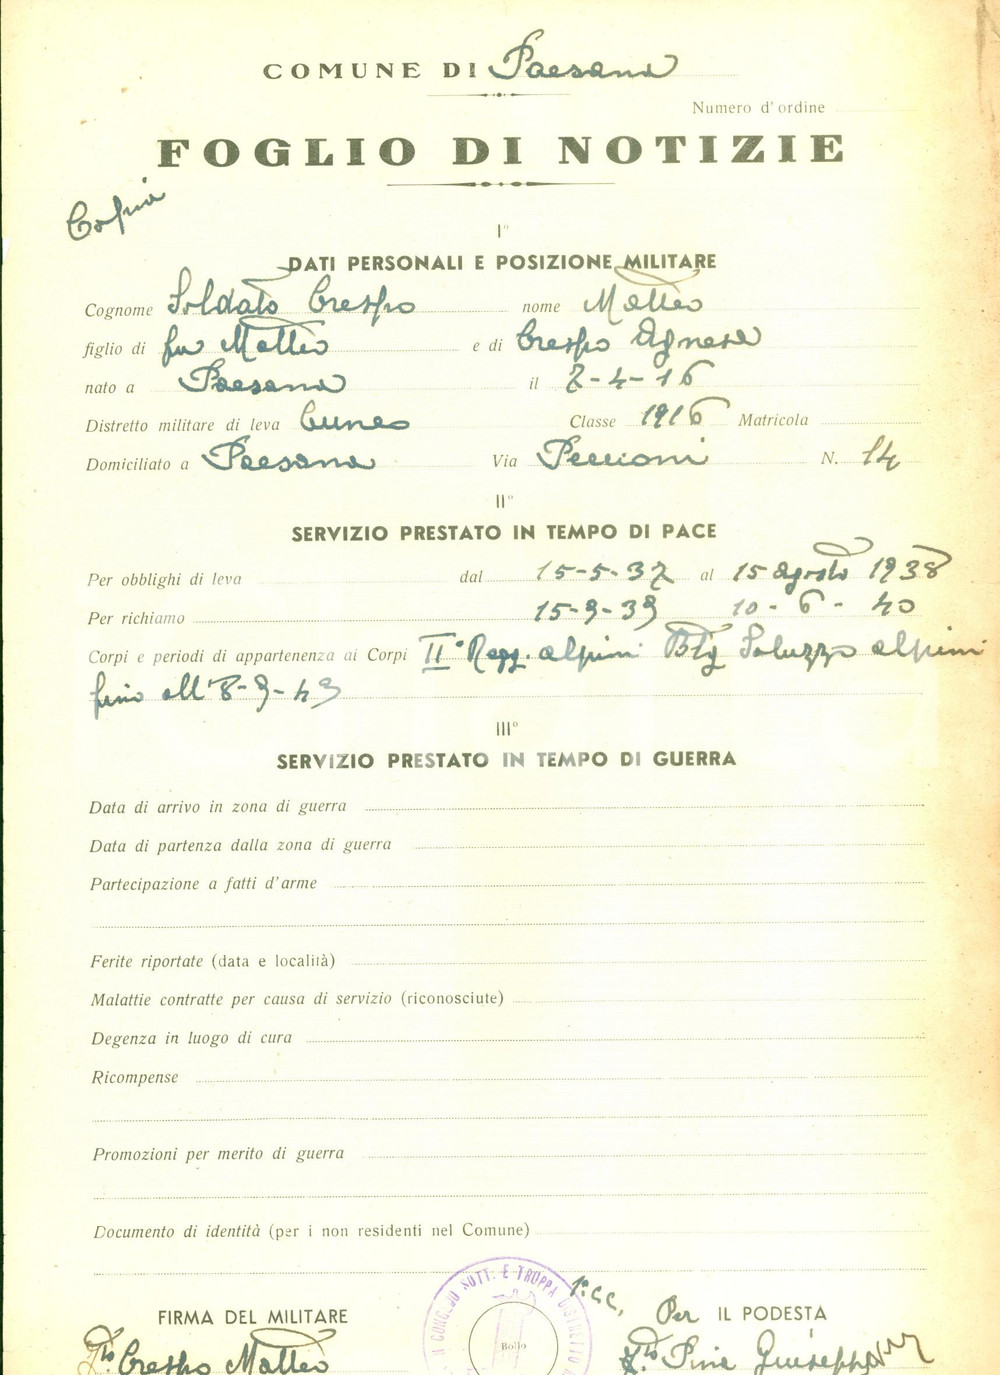 COMUNE DI Paesana
Numero d'ordine
FOGLIO DI NOTIZIE
Copia
I°
DATI PERSONALI E POSIZIONE MILITARE
Cognome Soldato Crespo nome Matteo
figlio di fu Matteo e di Crespo Agnese
nato a Paesana il 2-4-16
Distretto militare di leva Cuneo Classe 1916 Matricola
Domiciliato a Paesana Via Peccioni N. 14
II°
SERVIZIO PRESTATO IN TEMPO DI PACE
Per obblighi di leva dal 15-5-37 al 15 Agosto 1938
Per richiamo 15-9-39 10-6-40
Corpi e periodi di appartenenza ai Corpi II° Regg. alpini Btg Saluzzo alpini
fino all'8-9-43
III°
SERVIZIO PRESTATO IN TEMPO DI GUERRA
Data di arrivo in zona di guerra
Data di partenza dalla zona di guerra
Partecipazione a fatti d'arme
Ferite riportate (data e località)
Malattie contratte per causa di servizio (riconosciute)
Degenza in luogo di cura
Ricompense
Promozioni per merito di guerra
Documento di identità (per i non residenti nel Comune)
N CONGEDO SOTT. E TRUPPA DISTRETTO
Bollo
FIRMA DEL MILITARE Per IL PODESTA
Fto. Crespo Matteo Fto Giuseppe